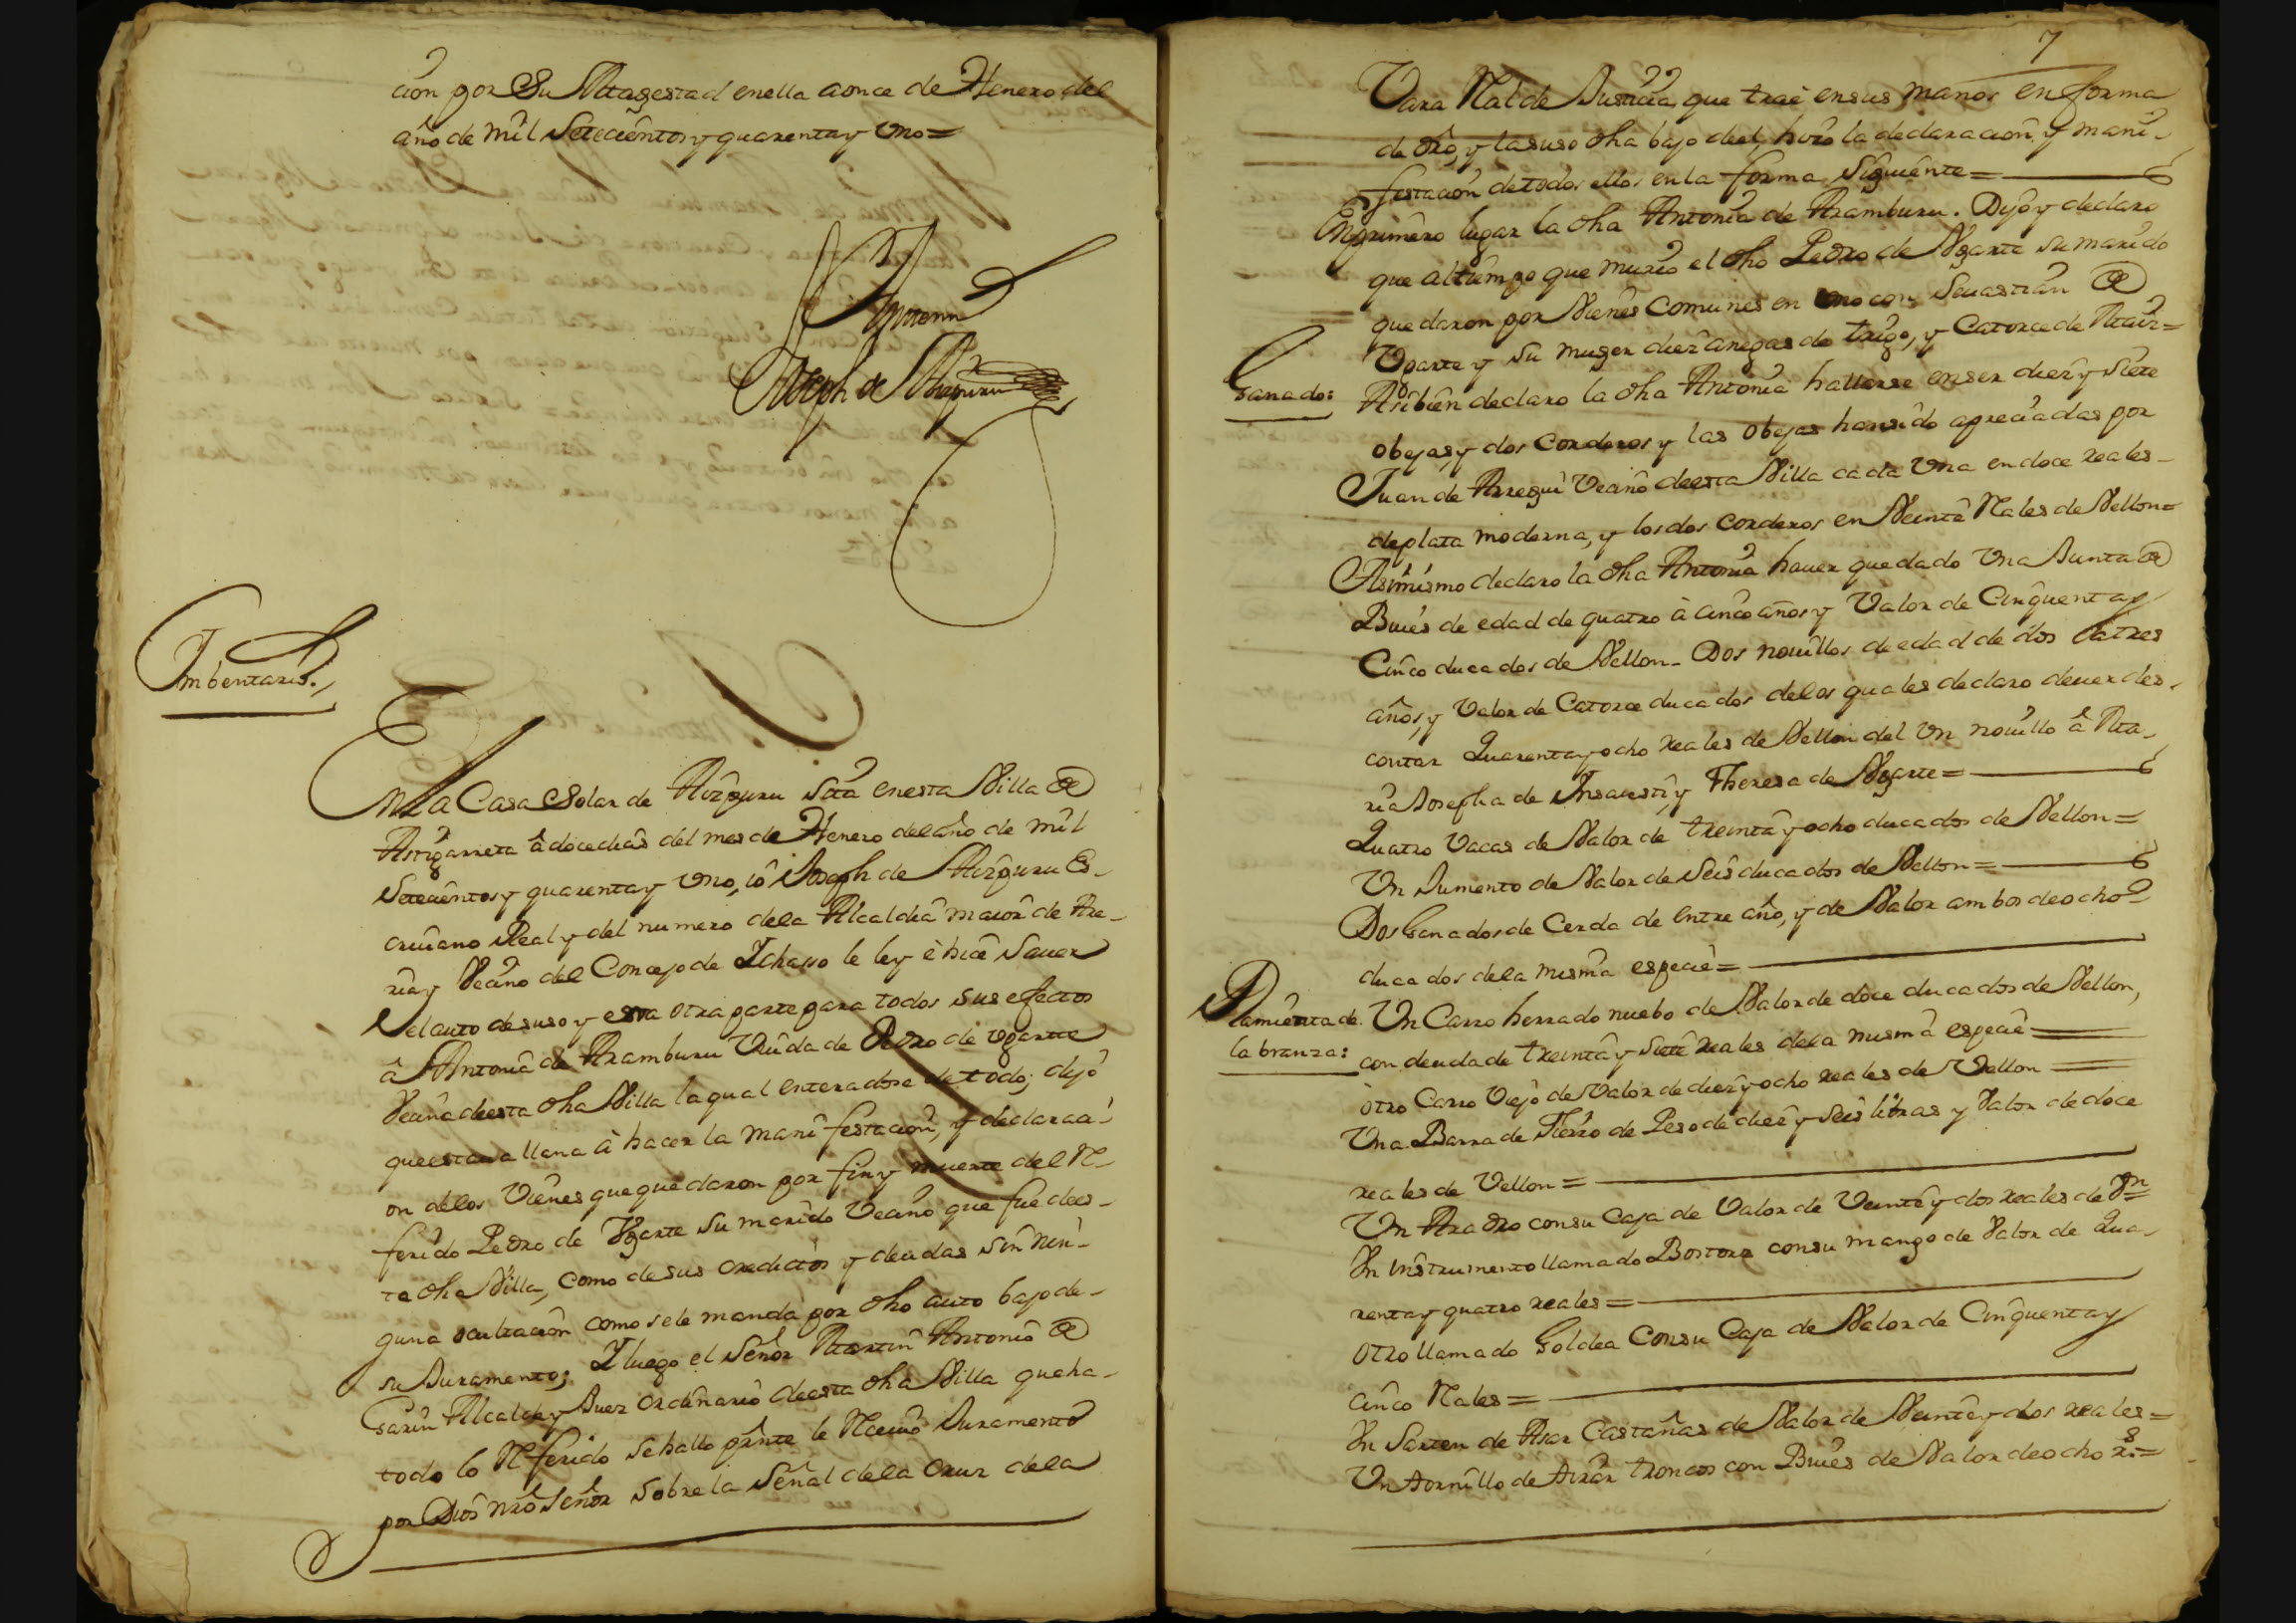 cion por Su Magestad enella aonce de Henero del
año de mil Setecientos y quarenta y Uno=
Ante mi
Joseph de Aizpuru
Imbentario.
En La Casa Solar de Aizpuru Sita en esta Villa de
Astigarreta â doce dias del mes de Henero del año de mil
Setecientos y quarenta y Uno, io Joseph de Aizpuru Es-
criuano Real y del numero dela Alcaldia maior de Are-
ria y Vecino del Concejo de Ichasso le ley è hice Sauer
el auto de suso y esta otra parte para todos sus efectos
â Antonia de Aramburu Viuda de Pedro de Ugarte
Vecina de esta dha Villa la qual enteradose de todo; dijo
que estaua llana à hacer la manifestacion, y declaraci-
on delos Vienes que quedaron por fin y muerte del Re-
ferido Pedro de Ugarte Su marido Vecino que fue de es-
ta dha Villa, como de sus creditos y deudas Sin nin-
guna ocultacion como se le manda por dho auto bajo de-
su Juramento; I luego el Señor Martin Antonio de
Garin Alcalde y Juez ordinario de esta dha Villa que ha-
todo lo Referido se hallo presnte le Receuio Juramento
por Dios nro Señor sobre la Señal dela Cruz dela
7
Vara Real de Justicia que trae en sus manos en forma
de dro, y la suso dha bajo de el, hizo la declaracion y mani-
festacion de todos ellos en la forma Siguiente=
En primero lugar la dha Antonia de Aramburu. Dijo y declaro
que al tiempo que murio el dho Pedro de Ugarte su marido
quedaron por Vienes Comunes en Uno con Seuastian de
Ugarte y Su muger diez anegas de trigo, y Catorce de Maiz=
Ganado:
Asibien declaro la dha Antonia hallarse en ser diez y Siete
obejas, y dos Corderos y las obejas han sido apreciadas por
Juan de Arregui Vecino de esta Villa cada Una en doce reales-
de plata moderna, y los dos corderos en Veinte Rales de Vellon=
Asimismo declaro la dha Antonia hauer quedado Una Junta de
Buies de edad de quatro à cinco años y Valor de Cinquenta y
Cinco ducados de Vellon- Dos nouillos de edad de dos â tres
años, y Valor de Catorce ducados delos quales declaro deuer des-
contar Quarenta y ocho reales de Vellon del Un nouillo â Ma-
ria Josepha de Insausti, y Theresa de Ugarte=
Quatro Vacas de Valor de treinta y ocho ducados de Vellon=
Un Jumento de Valor de Seis ducados de Vellon=
Dos Ganados de Cerda de entre año, y de Valor ambos de ocho
ducados dela misma especie=
Ramienta de
labranza:
Un Carro herrado nuebo de Valor de doce ducados de Vellon,
con deuda de treinta y Siete reales dela misma especie=
otro Carro Viejo de Valor de diez y ocho reales de Vellon=
Una Barra de Fierro de Peso de diez y Seis libras y Valor de doce
reales de Vellon=
Un Aradro con su Caja de Valor de Veinte y dos reales de Vn
Un instrumento llamado Bostorz con su mango de Valor de Qua-
renta y quatro reales=
otro llamado Goldea Con su Caja de Valor de Cinquenta y
Cinco Rales=
Un Sarten de Asar Castañas de Valor de Veinte y dos reales=
Un tornillo de tirar troncos con Buies de Valor de ocho rs=